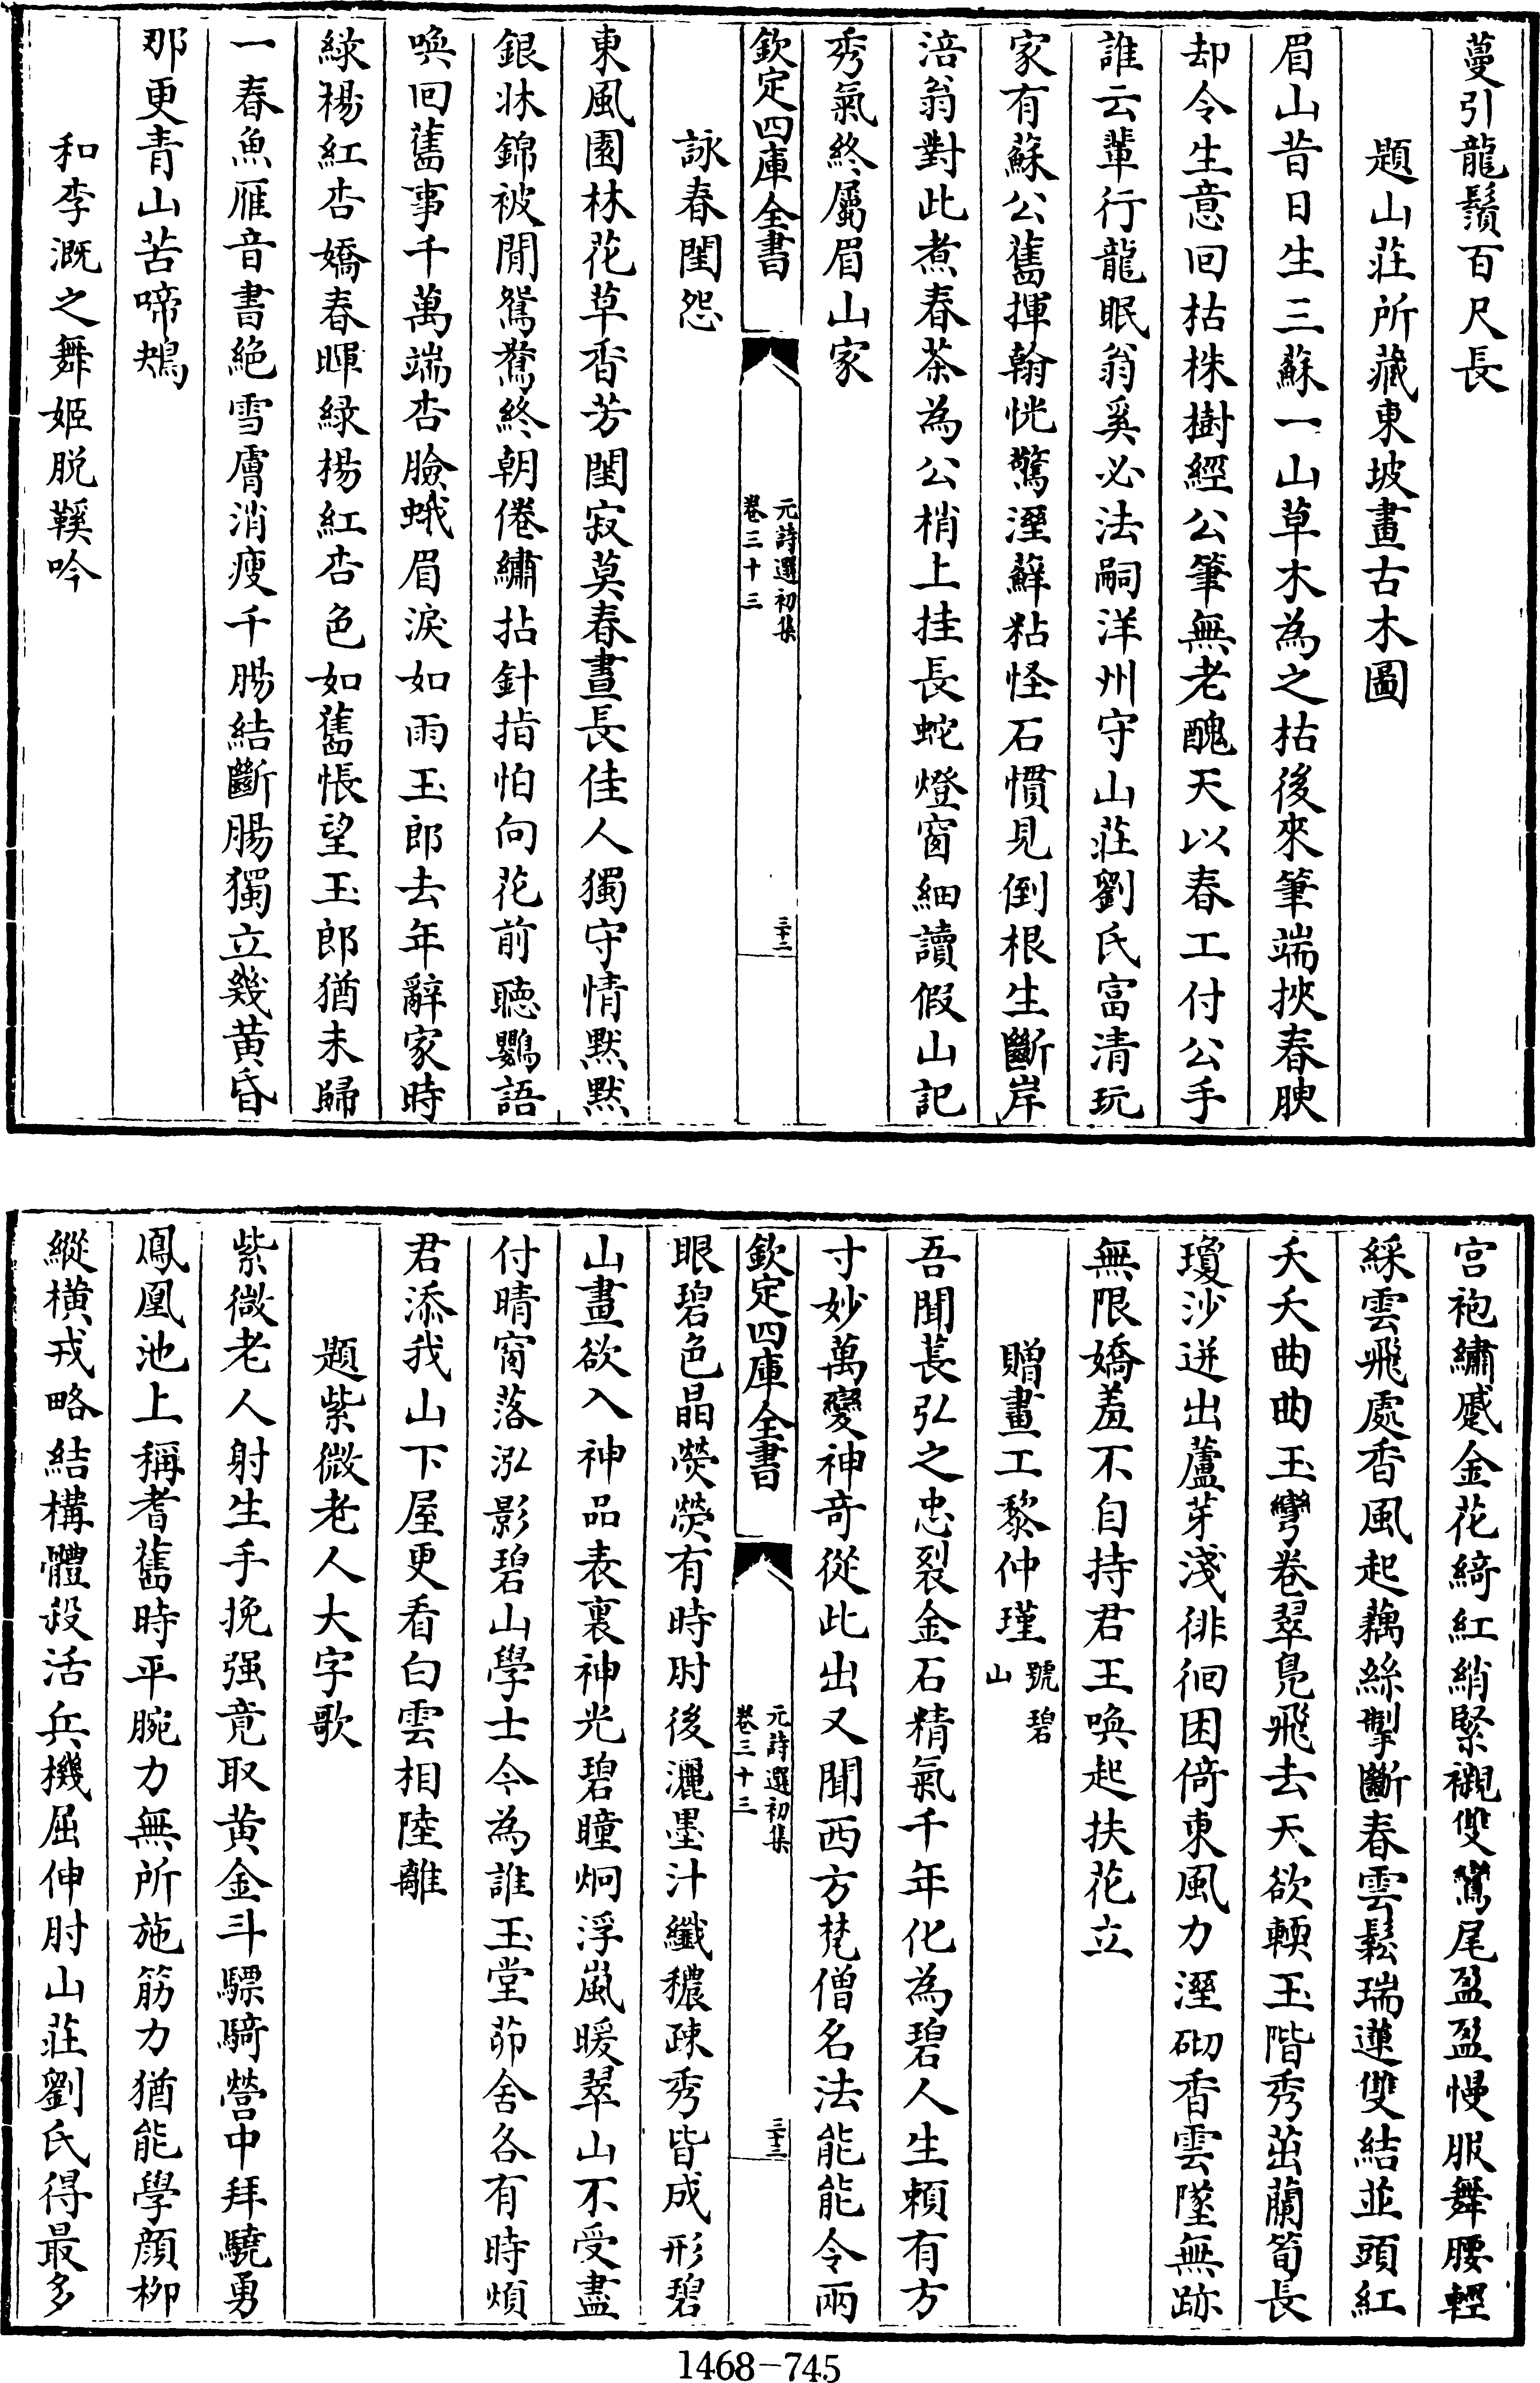 蔓引龍鬚百尺長
題山莊所藏東坡畫古木圖
眉山昔日生三蘇一山草木為之枯後來筆端挾春腴
却令生意回枯株樹經公筆無老醜天以春工付公手
誰云輩行龍眠翁奚必法嗣洋州守山莊劉氏富清玩
家有蘇公舊揮翰恍驚溼蘚粘怪石慣見倒根生斷岸
涪翁對此煮春茶為公梢上挂長蛇燈窗細讀假山記
秀氣終屬眉山家
欽定四庫全書
元詩選初集
卷三十三
三十二
詠春閨怨
東風園林花草香芳閨寂莫春晝長佳人獨守情默默
銀牀錦被閒鴛鴦終朝倦繡拈針指怕向花前聽鸚語
喚回舊事千萬端杏臉蛾眉淚如雨玉郎去年辭家時
綠楊紅杏嬌春暉緑楊紅杏色如舊悵望玉郎猶未歸
一春魚雁音書絶雪膚消瘦千腸結斷腸獨立幾黄昏
那更青山苦啼鴂
和李溉之舞姬脱鞵吟
宫袍繡蹙金花綺紅綃緊襯雙鴛尾盈盈慢服舞腰輕
綵雲飛處香風起藕絲掣斷春雲鬆瑞蓮雙結並頭紅
夭夭曲曲玉彎卷翠鳬飛去天欲輭玉階秀茁蘭筍長
瓊沙迸出蘆芽淺徘徊困倚東風力溼砌香雲墜無跡
無限嬌羞不自持君王喚起扶花立
贈畫工黎仲瑾號碧山
吾聞萇弘之忠裂金石精氣千年化為碧人生頼有方
寸妙萬變神奇從此出又聞西方梵僧名法能能令兩
欽定四庫全書
元詩選初集
卷三十三
三十三
眼碧色晶熒熒有時肘後灑墨汁纖穠疎秀皆成形碧
山畫欲入神品表裏神光碧瞳炯浮嵐暖翠山不受盡
付晴窗落泓影碧山學士今為誰玉堂茆舍各有時煩
君添我山下屋更看白雲相陸離
題紫微老人大字歌
紫微老人射生手挽强竟取黄金斗驃騎營中拜驍勇
鳳凰池上稱耆舊時平腕力無所施筋力猶能學顔柳
縱横戎略結構體殺活兵機屈伸肘山莊劉氏得最多
1468-745